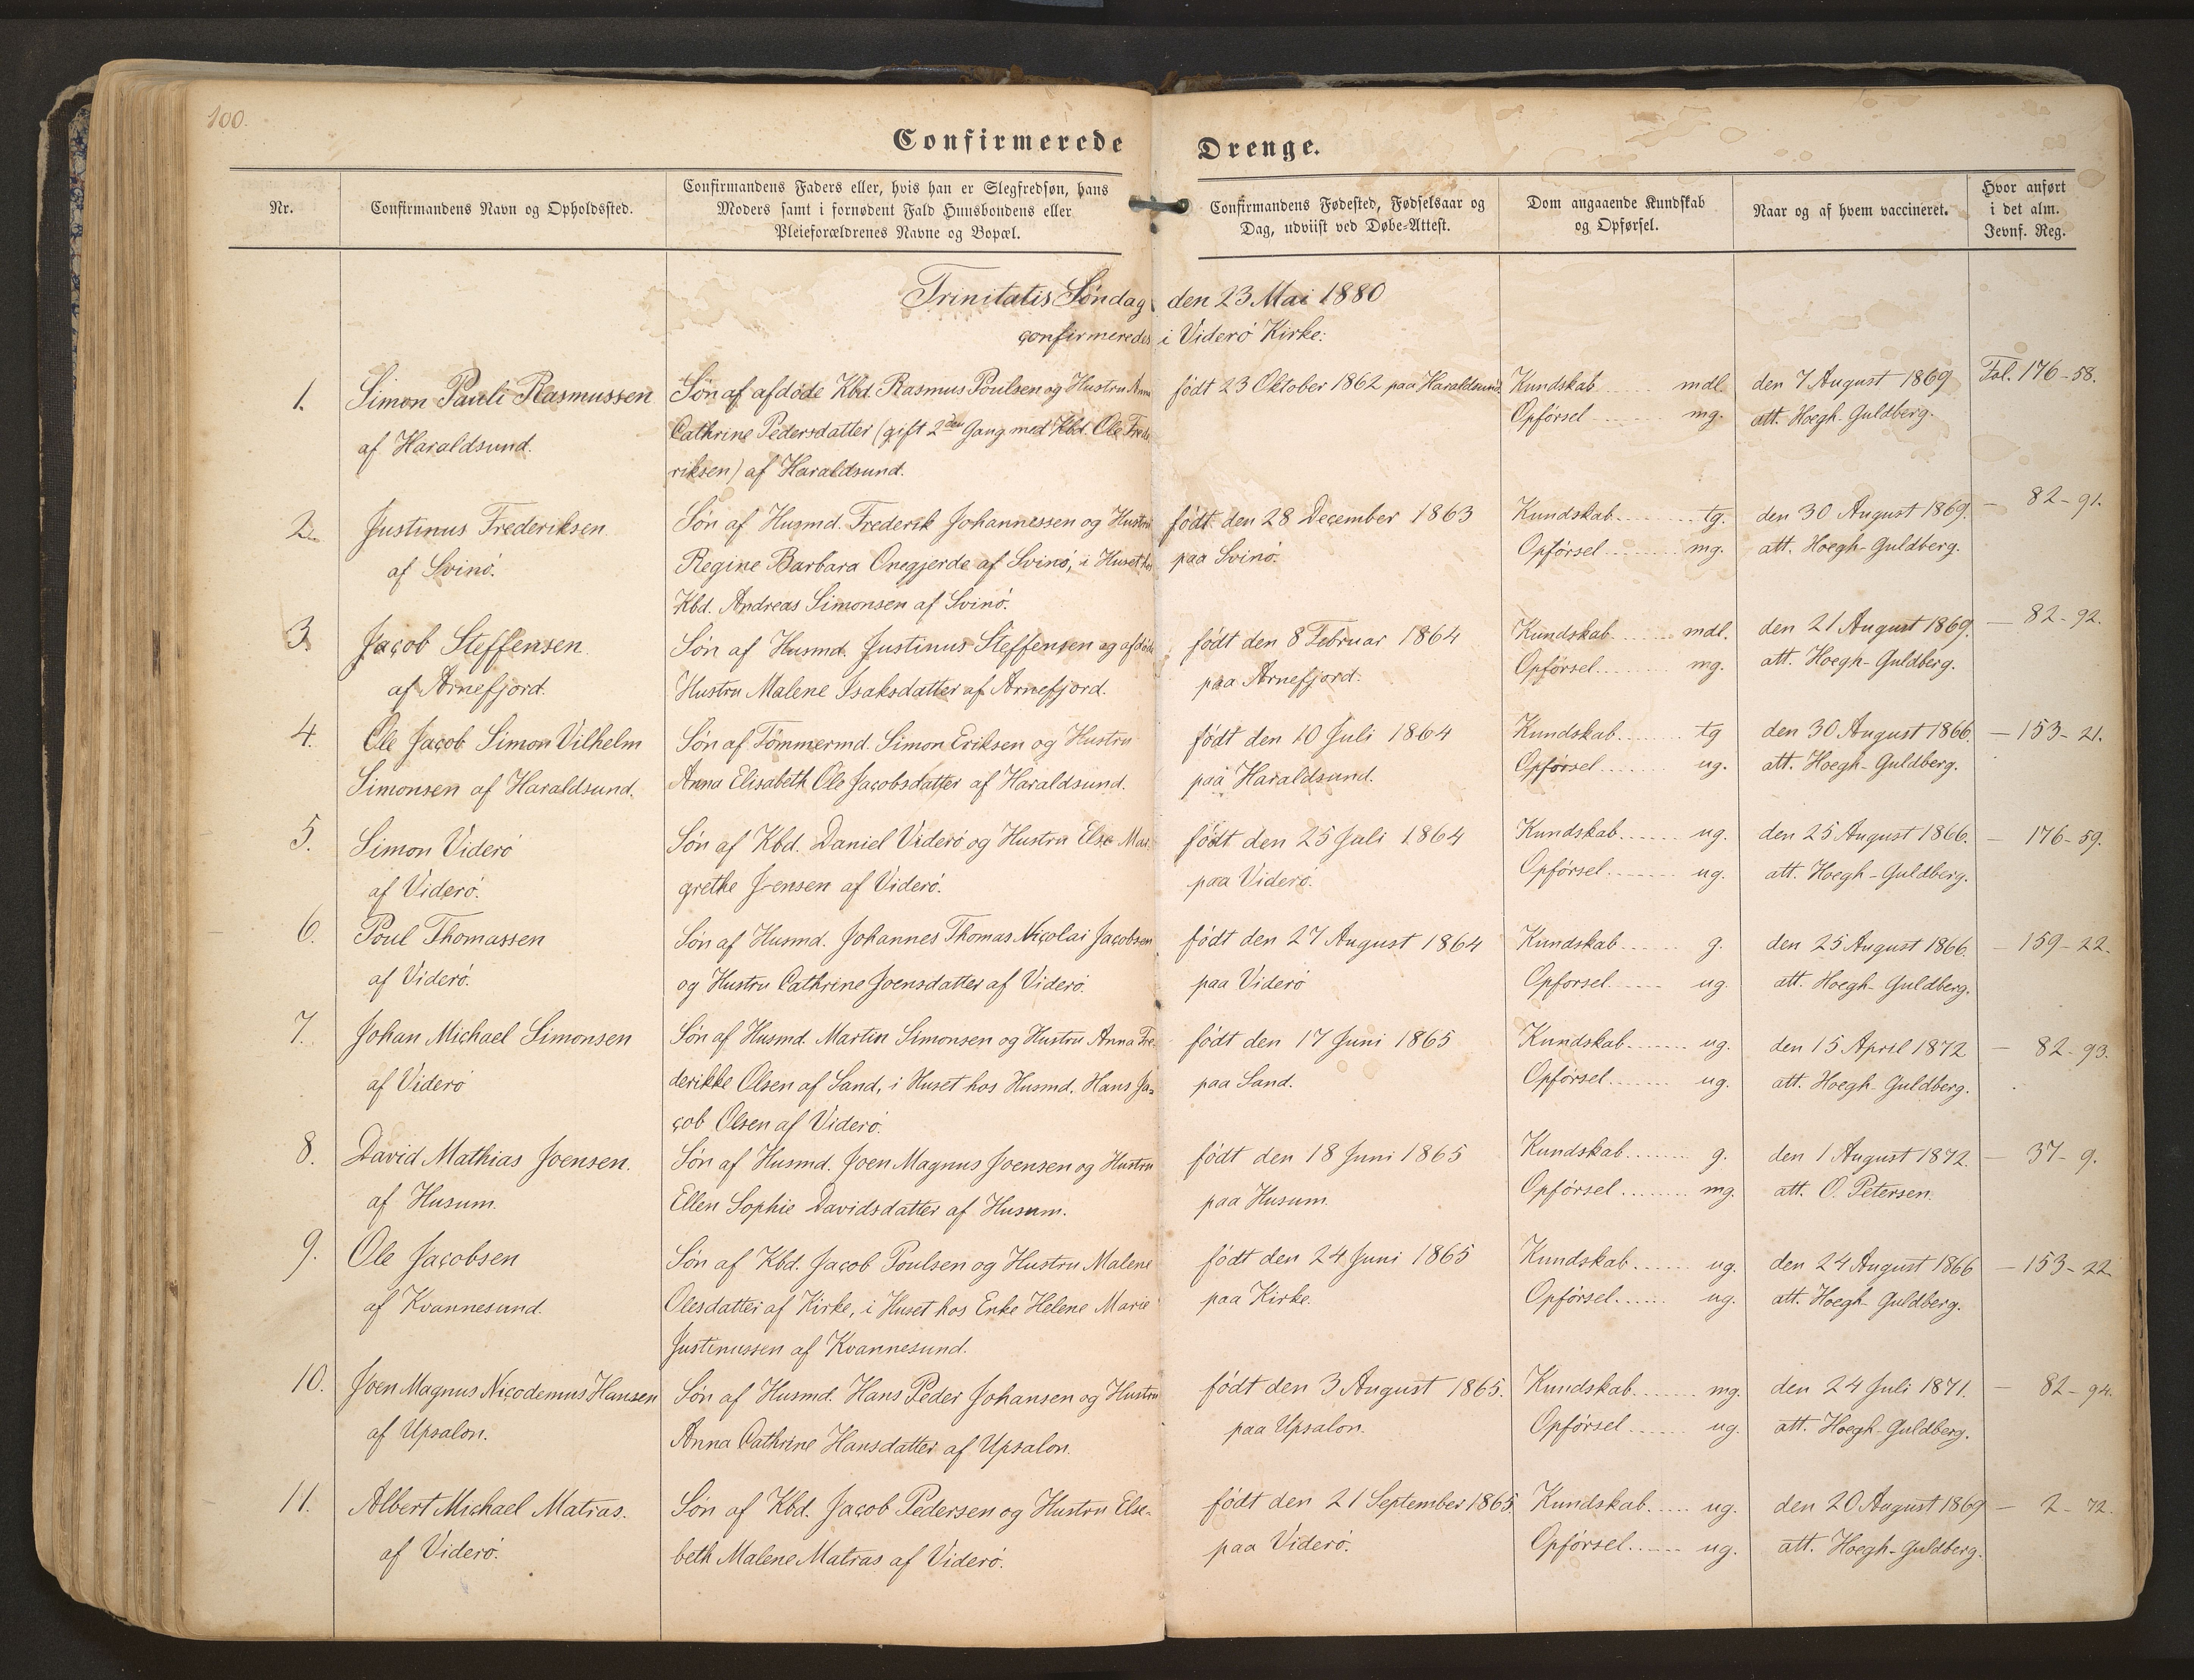 100.
Confirmerede Drenge.
Nr.
Confirmandens Navn og Opholdssted.
Confirmandens Faders eller, hvis han er Slegfredsøn, hans
Moders samt i fornødent Fald Huusbondens eller
Pleieforældrenes Navne og Bopæl.
Confirmandens Fødested, Fødselsaar og
Dag, udviist ved Døbe-Attest.
Dom angaaende Kundskab
og Opførsel.
Naar og af hvem vaccineret.
Hvor anført
i det alm.
Jevnf. Reg.
Trinitatis Söndag den 23 Mai 1880
confirmeredes i Viderö Kirke:
1.
Simon Pauli Rasmussen
af Haraldsund.
Sön af afdöde Kbd. Rasmus Poulsen og Hustru Anna
Cathrine Pedersdatter (gift 2den Gang med Kbd. Ole Frede
riksen) af Haraldsund.
födt 23 Oktober 1862 paa Haraldsund.
Kundskab ........ mdl.
Opförsel ........ mg.
den 7 August 1869
att. Hoegh-Guldberg.
Fol. 176-58.
2.
Justinus Frederiksen
af Svinö.
Sön af Husmd. Frederik Johannessen og Hustru
Regine Barbara Önegjerde af Svinö, i Huset hos
Kbd. Andreas Simonsen af Svinö.
födt den 28 December 1863
paa Svinö.
Kundskab ........ tg.
Opförsel ........ mg.
den 30 August 1869.
att. Hoegh-Guldberg.
— 82-91.
3.
Jacob Steffensen
af Arnefjord.
Sön af Husmd. Justinus Steffensen og afdöde
Hustru Malene Isaksdatter af Arnefjord.
födt den 8 Februar 1864
paa Arnefjord.
Kundskab ........ mdl.
Opförsel ........ mg.
den 21 August 1869.
att. Hoegh-Guldberg.
— 82-92.
4.
Ole Jacob Simon Vilhelm
Simonsen af Haraldsund.
Sön af Tömmermd. Simon Eriksen og Hustru
Anna Elisabeth Ole Jacobsdatter af Haraldsund.
födt den 10 Juli 1864
paa Haraldsund.
Kundskab ........ tg
Opförsel ........ ug.
den 30 August 1866.
att. Hoegh-Guldberg.
— 153-21.
5.
Simon Viderö
af Viderö.
Sön af Kbd. Daniel Viderö og Hustru Else Mar-
grethe Joensen af Viderö.
födt den 25 Juli 1864
paa Viderö.
Kundskab ........ ug.
Opförsel ........ ug.
den 25 August 1866.
att. Hoegh-Guldberg.
— 176-59.
6.
Poul Thomassen
af Viderö.
Sön af Husmd. Johannes Thomas Nicolai Jacobsen
og Hustru Cathrine Joensdatter af Viderö.
födt den 27 August 1864
paa Viderö
Kundskab ........ g.
Opförsel ........ ug.
den 25 August 1866.
att. Hoegh-Guldberg.
— 159-22.
7.
Johan Michael Simonsen
af Viderö
Sön af Husmd. Martin Simonsen og Hustru Anna Fre-
derikke Olsen af Sand, i Huset hos Husmd. Hans Ja-
cob Olsen af Viderö.
födt den 17 Juni 1865
paa Sand.
Kundskab ........ ug.
Opförsel ........ ug.
den 15 April 1872
att. Hoegh-Guldberg.
— 82-93.
8.
David Mathias Joensen.
af Husum.
Sön af Husmd. Joen Magnus Joensen og Hustru
Ellen Sophie Davidsdatter af Husum.
födt den 18 Juni 1865
paa Husum.
Kundskab ........ g.
Opförsel ........ mg.
den 1 August 1872.
att. O. Petersen.
— 37-9.
9.
Ole Jacobsen
af Kvannesund.
Sön af Kbd. Jacob Poulsen og Hustru Malene
Olesdatter af Kirke, i Huset hos Enke Helene Marie
Justinussen af Kvannesund.
födt den 24 Juni 1865
paa Kirke.
Kundskab ........ ug.
Opförsel ........ ug.
den 24 August 1866
att. Hoegh-Guldberg.
— 153-22.
10.
Joen Magnus Nicodemus Hansen
af Upsalon.
Sön af Husmd. Hans Peder Johansen og Hustru
Anna Cathrine Hansdatter af Upsalon.
födt den 3 August 1865.
paa Upsalon.
Kundskab ........ mg.
Opförsel ........ ug.
den 24 Juli 1871.
att. Hoegh-Guldberg.
— 82-94.
11.
Albert Michael Matras.
af Viderö.
Sön af Kbd. Jacob Pedersen og Hustru Else-
beth Malene Matras af Viderö.
födt den 21 September 1865.
paa Viderö.
Kundskab ........ ug.
Opförsel ........ ug.
den 20 August 1869
att. Hoegh-Guldberg.
— 2-72.